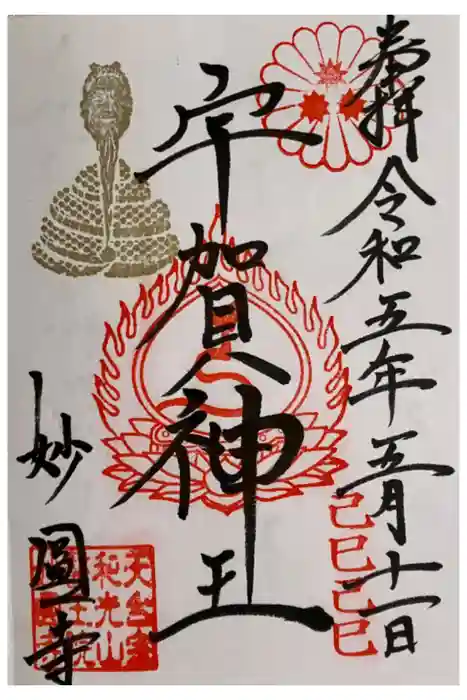 奉拝 令和五年五月十一日
己巳己巳
宇賀神王
妙圓寺
和光山